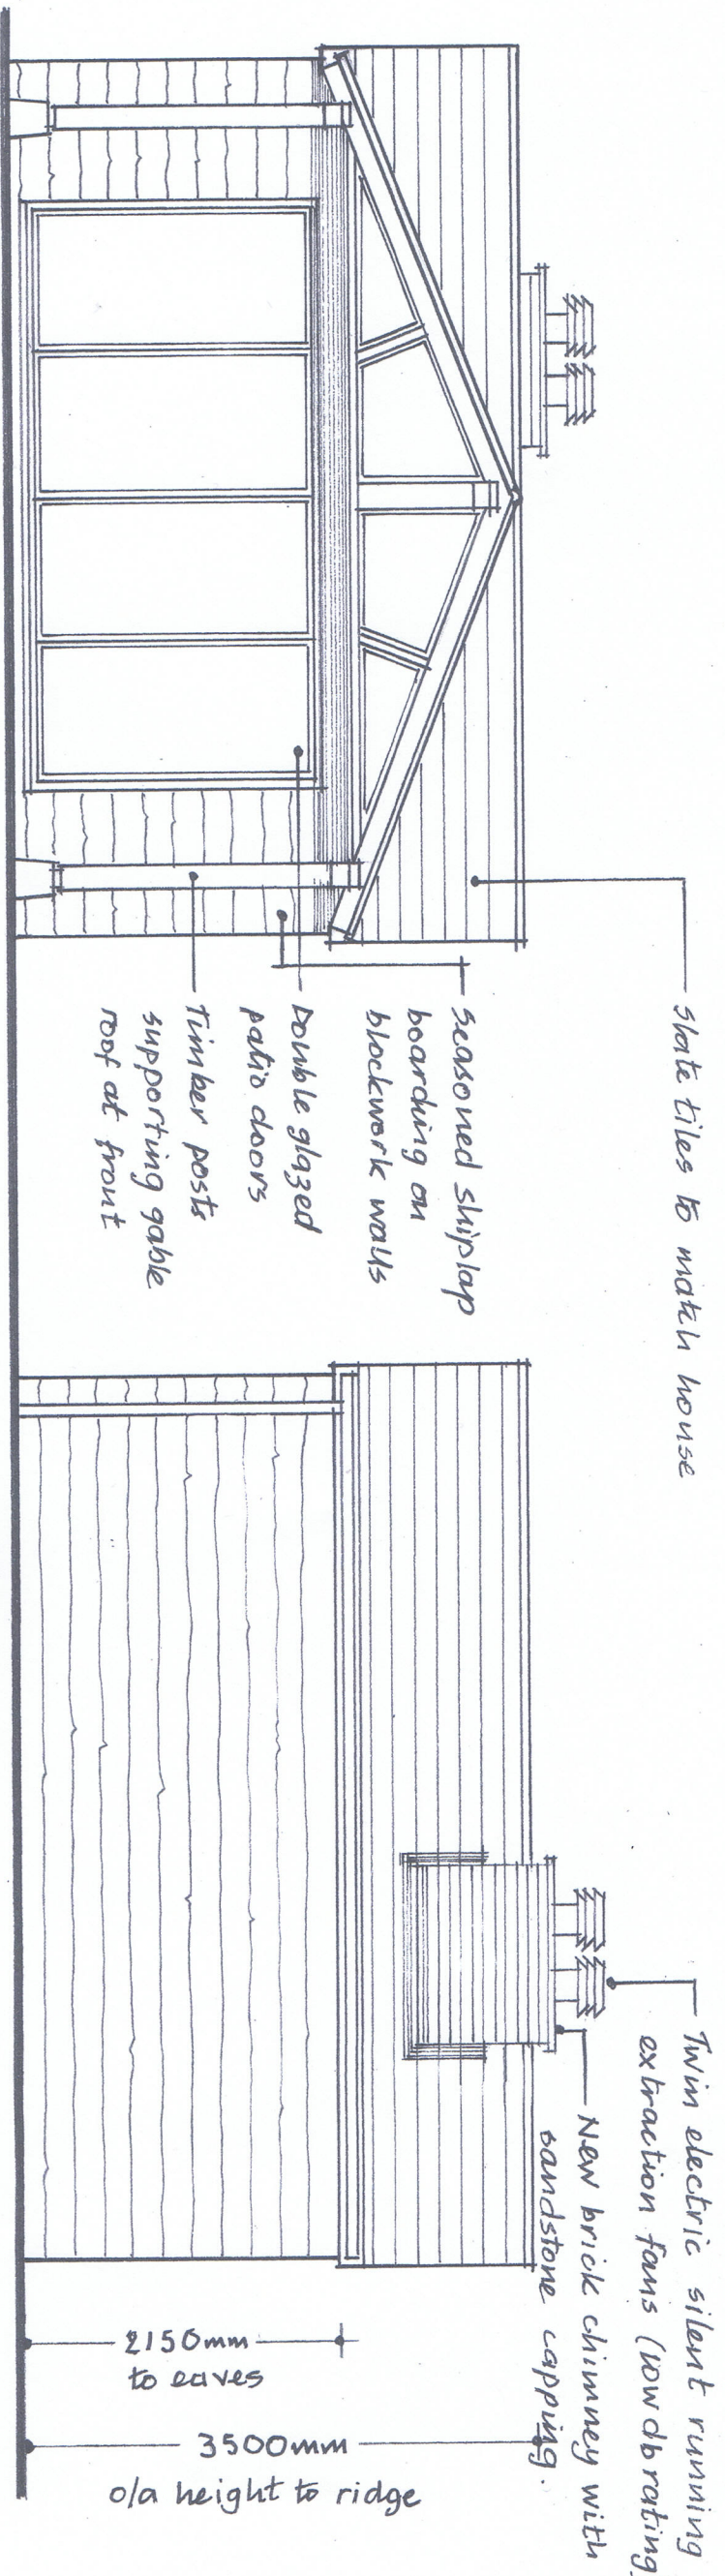 slate tiles to match house
seasoned shiplap
boarding on
blockwork walls
Double glazed
patio doors
Timber posts
supporting gable
roof at front
Twin electric silent running
extraction fans (low db rating)
New brick chimney with
sandstone capping.
2150mm
to eaves
3500mm
o/a height to ridge